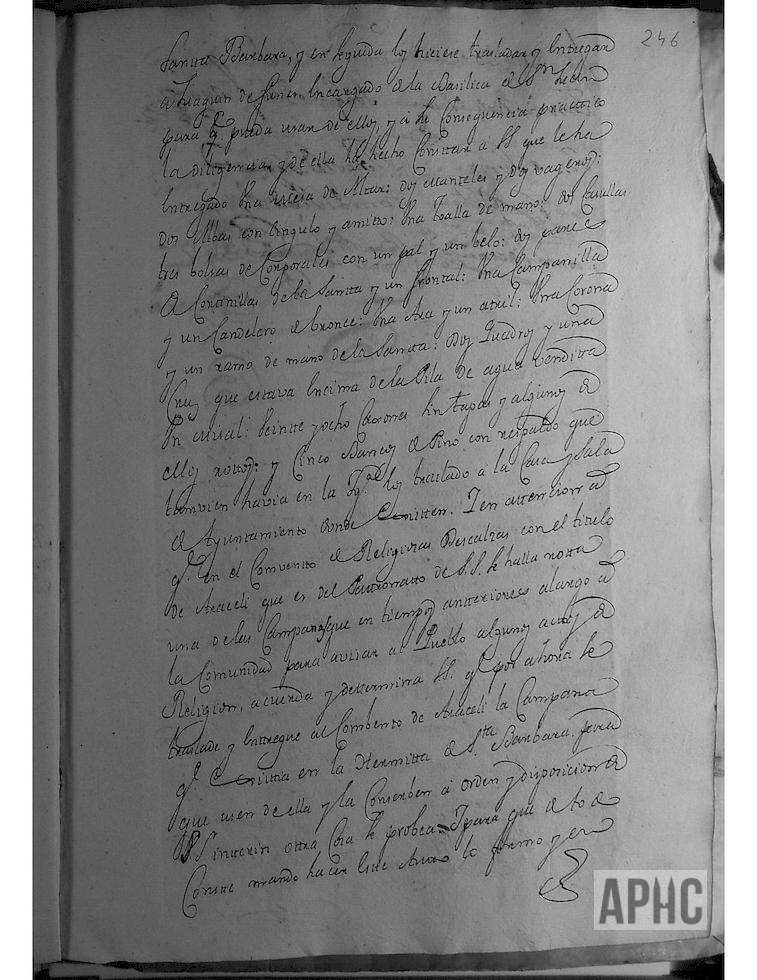 246
Santta Barbara, y en seguida los hiciese trasladar y entregar
a Juaquin de Funes encargado de la Basilica de Sn
para q pueda usar de ellos, y a su consequencia practico
la diligencia, y de ella ha hecho constar a SS que le ha
entregado Una mesa de Altar: dos manteles y dos
dos Albas con cingulo y amitto: Una toalla de mano: dos Casullas
tres bolsas de Corporales con un pal y un belo: dos pares
de Cortinillas de la Santta y un frontal: Una Campanilla
y un Candelero de bronce: Una Ara y un atril: Una Corona
y un ramo de mano de la Santta: Dos Quadros y una
Cruz que estava encima de la Pila de agua vendita
Un misal: Veinte y ocho Caxones sin tapas y algunos de
ellos rottos: y Cinco Bancos de Pino con respaldo que
tamvien havia en la Yga los traslado a la Casa y Sala
de Ayuntamiento donde existten. Y en attencion a
q. en el Convento de Religiosas Descalzas con el titulo
de Araceli que es del Pattronatto de S.S. se halla rotta
una de las Campanas que en tiempos antteriores alargo a
la Comunidad para avisar al Pueblo algunos actos de
Religion, acuerda y determina SS. q. por ahora se
traslade y enttregue al Combento de Araceli la Campana
q. existia en la Hermitta de Sta Barbara, para
que usen de ella y la Conserben a orden y disposicion de
SS intterin ottra Cosa se probea. Y para que de todo
Conste mando hacer este Autto lo firmo y en
APHC